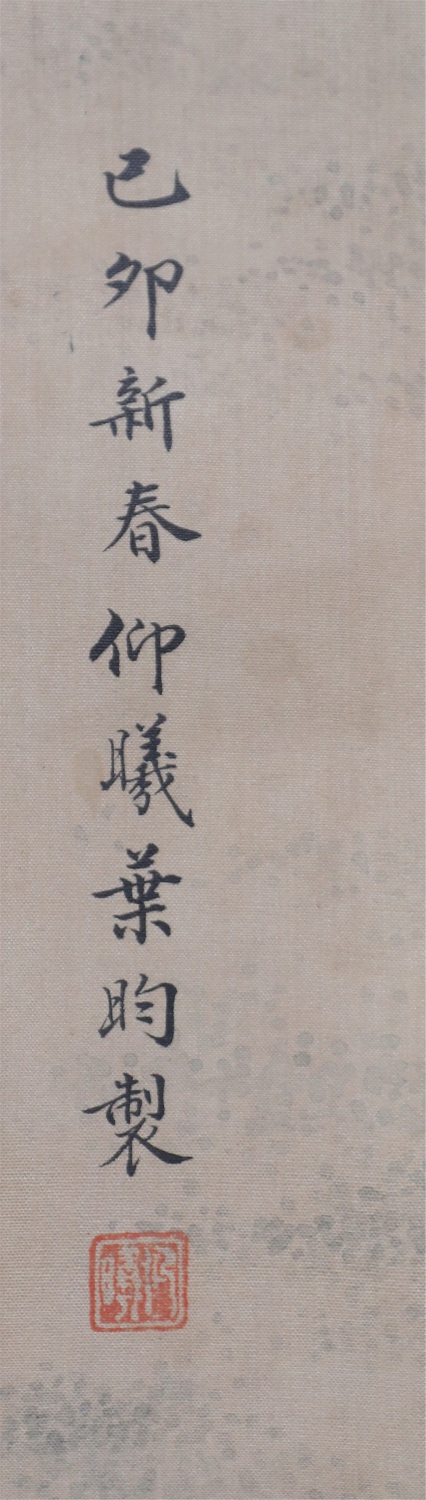 己卯新春仰曦葉昀製